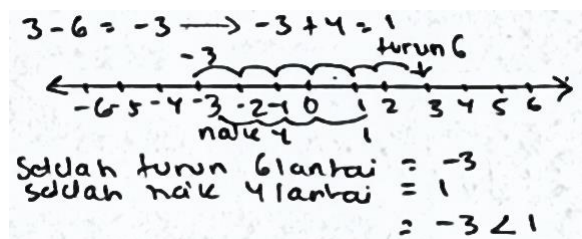 3 - 6 = -3 → -3 + 4 = 1
-3 turun 6
-6 -5 -4 -3 -2 -1 0 1 2 3 4 5 6
naik 4 1
Setelah turun 6 lantai = -3
Setelah naik 4 lantai = 1
= -3 < 1